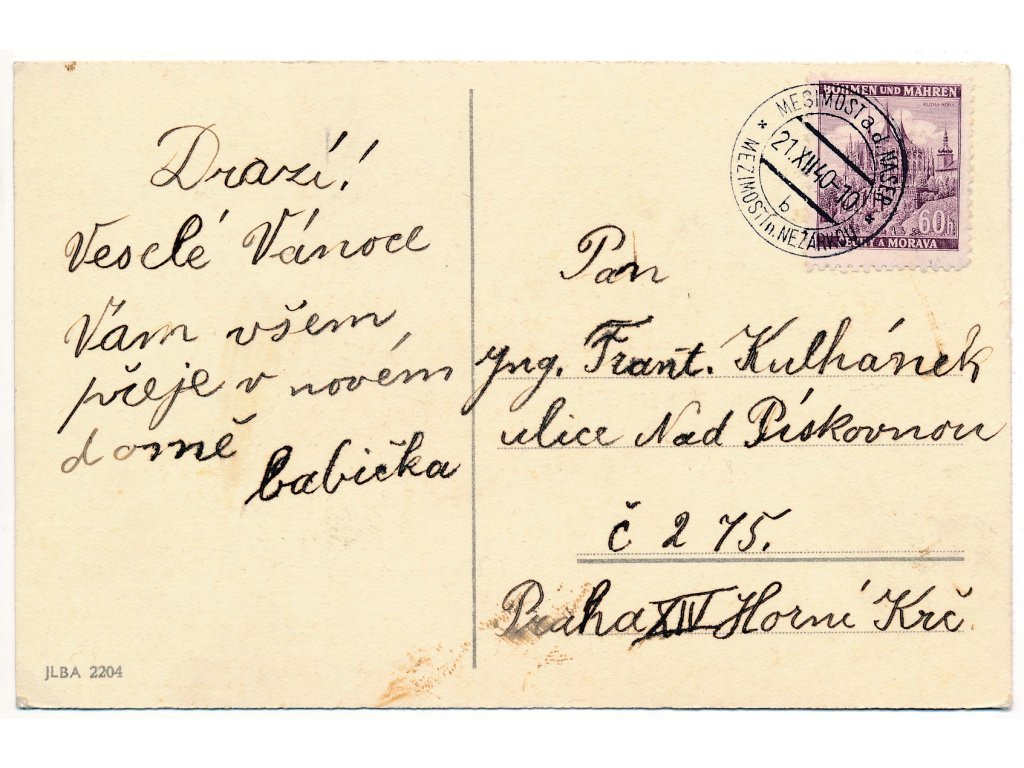 Drazí!
Veselé Vánoce
Vám všem
přeje v novém
domě
babička
JLBA 2204
BÖHMEN UND MÄHREN
60h
ČECHY A MORAVA
* MESIMOST a.d. NASER *
21.XII.40-10
b
MEZIMOSTÍ n. NEŽÁRKOU
Pan
Yng. Frant. Kulhánek
ulice Nad Pískovnou
č 275.
Praha XIV Horní Krč